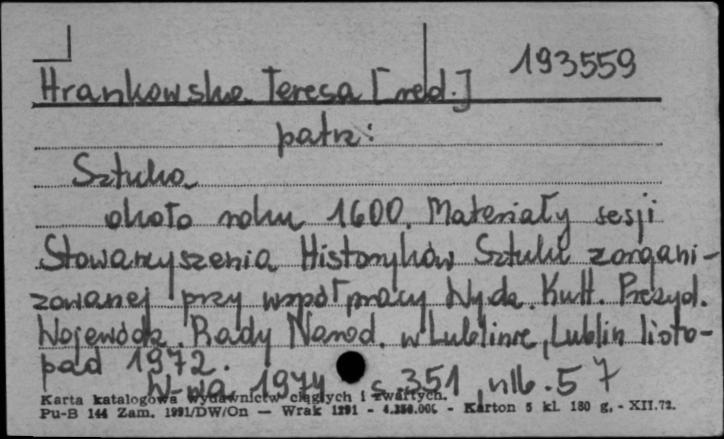 193559
Hrankowska Teresa [red.]
patrz:
Sztuka
około roku 1600. Materiały sesji
Stowarzyszenia Historyków Sztuki zorgani-
zowanej przy współpracy Wydz. Kult. Prezyd.
Wojewódz. Rady Narod. w Lublinie, Lublin listo-
pad 1972.
W-wa 1974 s. 351, nlb. 57
Karta katalogowa wydawnictw ciągłych i zwartych.
Pu-B 144 Zam. 1991/DW/On — Wrak 1291 - 4.250.000 - Karton 5 kl. 180 g. - XII.72.